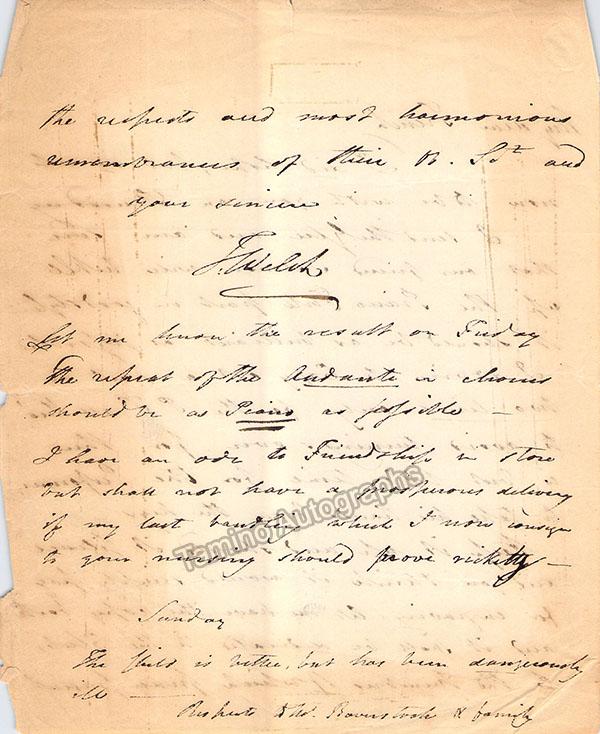 the respects and most harmonious
remembrances of their B. Sdt and
your sincere
T. Welch
Let me know the result on Friday
The repeat of the Andante in chorus
should be as Piano as possible —
I have an ode to Friendship in store
but shall not have a prosperous delivery
if my last bantling which I now consign
to your nursing should prove ricketty —
Tamino Autographs
Sunday
The child is better, but has been dangerously
ill —
Respects to Mr. &  family